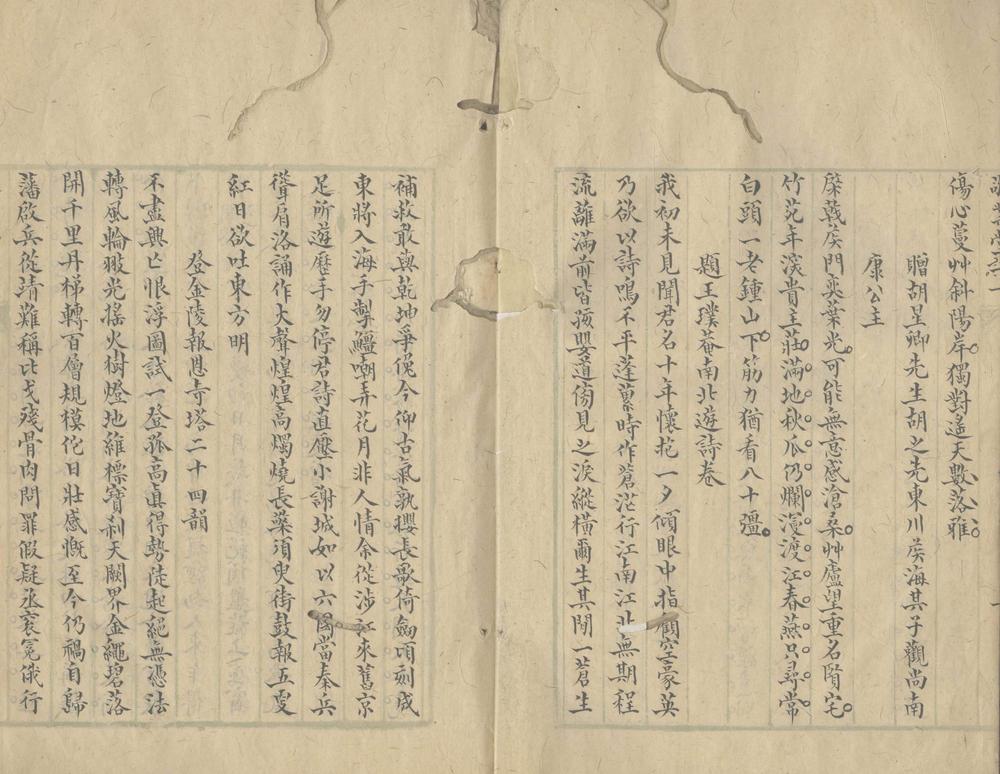 傷心蔓艸斜陽岸獨對遙天數落雅
贈胡星卿先生胡之先東川矦海其子觀尚南
康公主
棨戟矦門奕葉光可能無意感滄桑艸廬望重名賢宅
竹苑年淡貴主莊滿地秋瓜仍爛漫渡江春燕只尋常
白頭一老鍾山下筋力猶看八十彊
題王璞菴南北遊詩卷
我初未見聞君名十年懷抱一夕傾眼中指顧空豪英
乃欲以詩鳴不平蓬藁時作蒼茫行江南江北無期程
流離滿前皆孩嬰道傍見之淚縱橫爾生其閒一蒼生
補救敢與乾坤爭俛今仰古氣孰攖長歌倚劒頃刻成
東將入海手掣鱷嘲弄花月非人情余從涉江來舊京
足所遊歷手勿停君詩直壓小謝城如以六國當秦兵
聳肩洛誦作大聲煌煌高燭燒長藥須臾街鼓報五更
紅日欲吐東方明
登金陵報恩寺塔二十四韻
不盡興亡恨浮圖試一登孤高真得勢徒起絕無憑法
轉風輪翍光搖火樹燈地維標寶剎天闕界金繩碧落
開千里丹梯轉百層規模佗日壯感慨至今仍禍自歸
藩啟兵從靖難稱比戈殘骨肉問罪假疑丞袞冕俄行